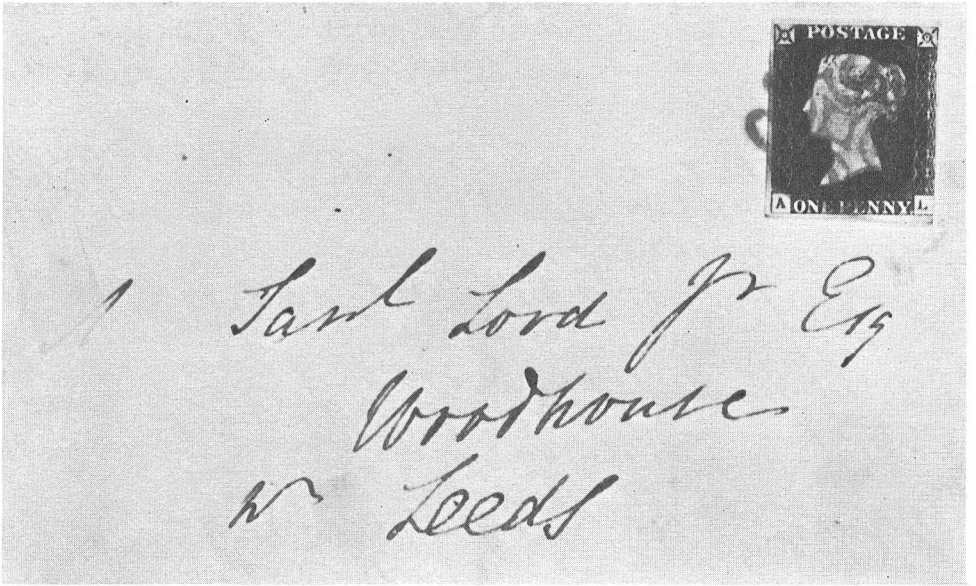 POSTAGE
A ONE PENNY L
Saml Lord Jr Esq
Woodhouse
nr Leeds